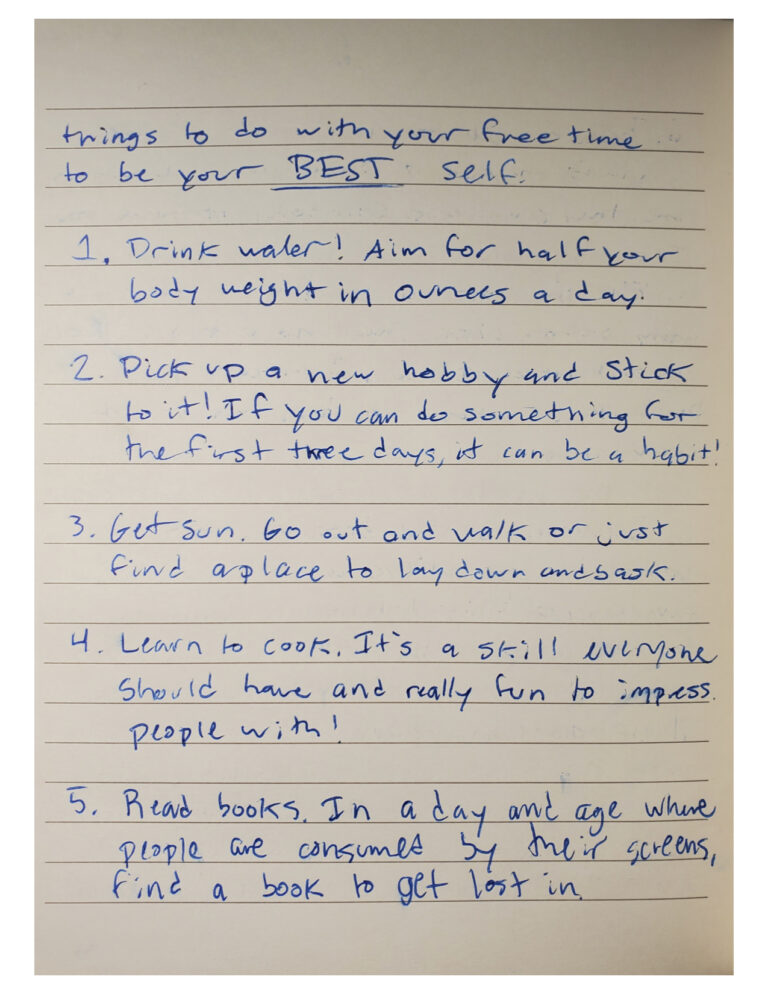 things to do with your free time
to be your BEST self.
1. Drink water! Aim for half your
body weight in ounces a day.
2. Pick up a new hobby and stick
to it! If you can do something for
the first three days, it can be a habit!
3. Get sun. Go out and walk or just
find a place to lay down and bask.
4. Learn to cook. It's a skill everyone
should have and really fun to impress
people with!
5. Read books. In a day and age where
people are consumed by their screens,
find a book to get lost in.